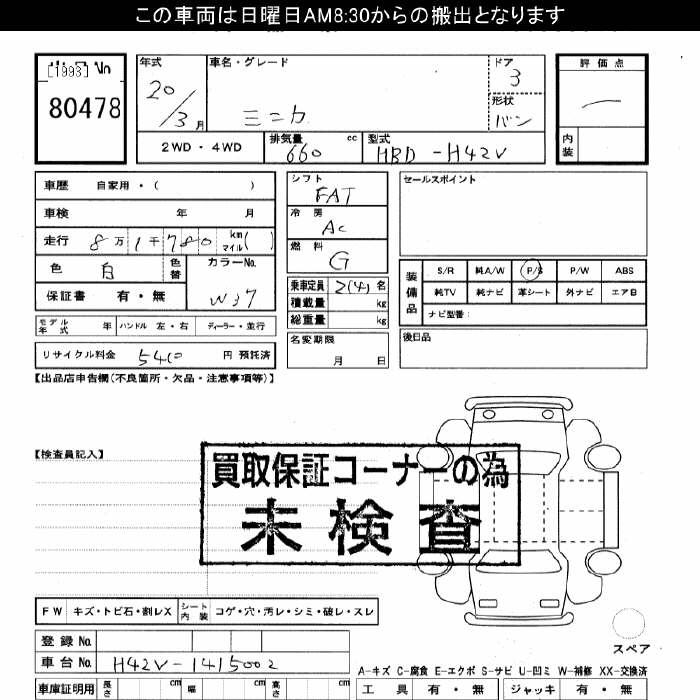 この車両は日曜日AM8:30からの搬出となります
[1993]
80478
年式
20/3月
車名・グレード
ミニカ
ドア
3
形状
バン
評価点
内装
2WD・4WD
排気量 660 cc
型式 HBD-H42V
車歴 自家用・( )
車検 年 月
走行 8万1千780 km マイル( )
色 白
色替
カラーNo. W37
保証書 有・無
モデル年式 年 ハンドル 左・右 ディーラー・並行
リサイクル料金 5410 円 預託済
シフト
FAT
冷房
AC
燃料
G
乗車定員 2(4) 名
積載量 kg
総重量 kg
名変期限
月 日
セールスポイント
装備品
S/R 純A/W P/S P/W ABS
純TV 純ナビ 革シート 外ナビ エアB
ナビ型番:
後日品
【出品店申告欄(不良箇所・欠品・注意事項等)】
【検査員記入】
買取保証コーナーの為
未検査
FW キズ・トビ石・割レX シート内装 コゲ・穴・汚レ・シミ・破レ・スレ
登録No.
車台No. H42V-1415002
車庫証明用 長さ cm 幅 cm 高さ cm
スペア
A-キズ C-腐食 E-エクボ S-サビ U-凹ミ W-補修 XX-交換済
工具 有・無 ジャッキ 有・無